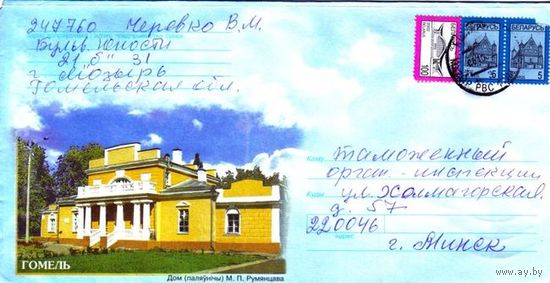 247760 Черевко В.М.
Бульв. Юности
21 "Б" 31
г. Мозырь
Гомельская обл.
БЕЛАРУСЬ
БЕЛАРУСЬ
БЕЛАРУСЬ
100
5
5
РВС
Каму
таможенный
орган-инспекции
Куды
ул. Холмогорская
д. 57
220046
г. Минск
ГОМЕЛЬ
Дом (паляўнічы) М. П. Румянцава
www.ay.by